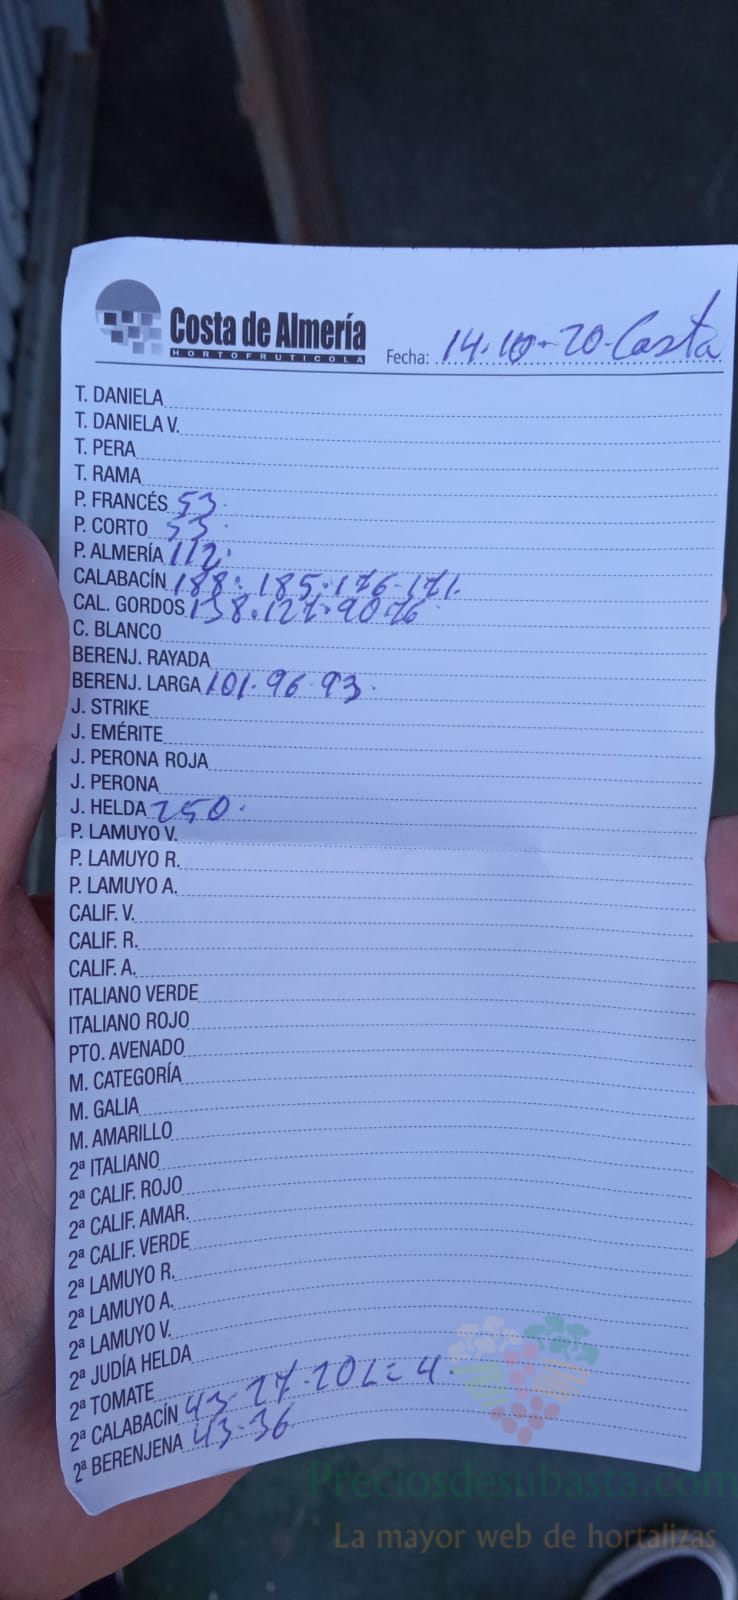 Costa de Almería
HORTOFRUTICOLA
Fecha: 14-10-20-Costa
T. DANIELA
T. DANIELA V.
T. PERA
T. RAMA
P. FRANCÉS 53.
P. CORTO 53.
P. ALMERÍA 112.
CALABACÍN 188. 185. 176-171.
CAL. GORDOS 138.127.90 76
C. BLANCO
BERENJ. RAYADA
BERENJ. LARGA 101. 96. 93.
J. STRIKE
J. EMÉRITE
J. PERONA ROJA
J. PERONA
J. HELDA 250.
P. LAMUYO V.
P. LAMUYO R.
P. LAMUYO A.
CALIF. V.
CALIF. R.
CALIF. A.
ITALIANO VERDE
ITALIANO ROJO
PTO. AVENADO
M. CATEGORÍA
M. GALIA
M. AMARILLO
2ª ITALIANO
2ª CALIF. ROJO
2ª CALIF. AMAR.
2ª CALIF. VERDE
2ª LAMUYO R.
2ª LAMUYO A.
2ª LAMUYO V.
2ª JUDÍA HELDA
2ª TOMATE
2ª CALABACÍN 43-27-20
2ª BERENJENA 43-36
Preciosdesubasta.com
La mayor web de hortalizas